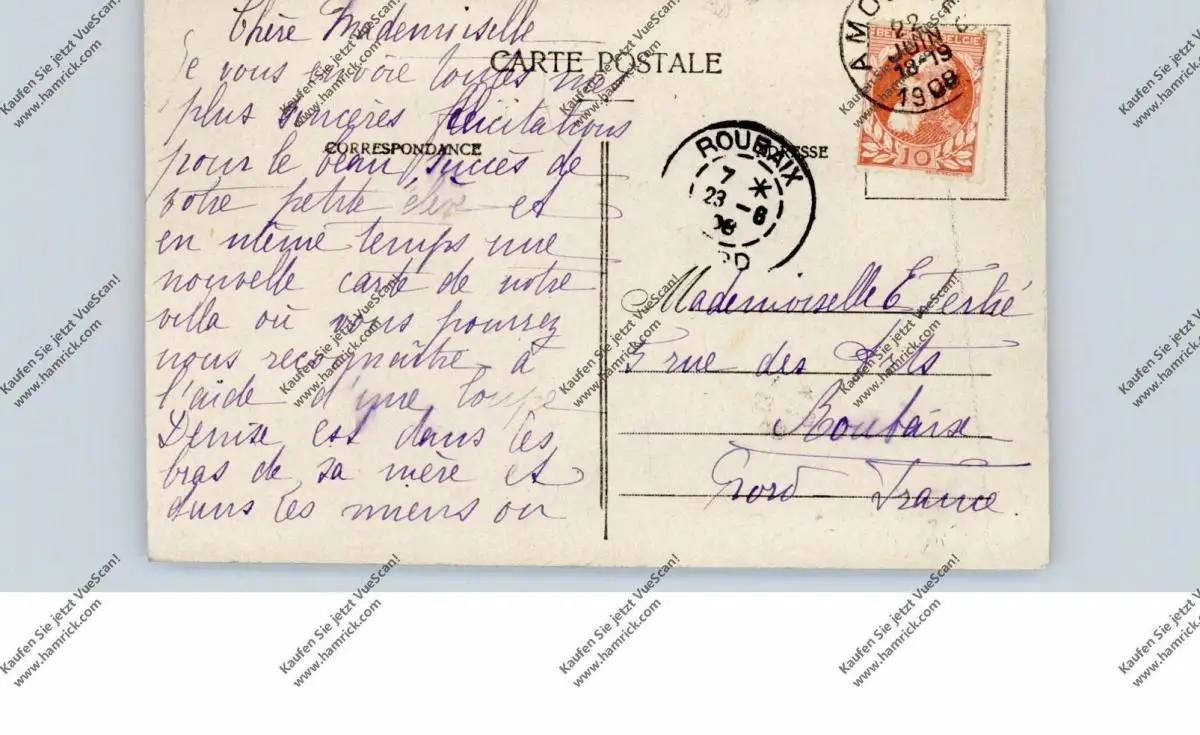 Chère Mademoiselle
Je vous envoie toutes mes
plus sincères félicitations
pour le beau succès de
votre petite élève et
en même temps une
nouvelle carte de notre
villa où vous pourrez
nous reconnaître à
l'aide d'une loupe
Denise est dans les
bras de sa mère et
dans les miens ou
CARTE POSTALE
CORRESPONDANCE
ADRESSE
AMO
22
JUIN
18-19
1908
BELGIE
10
ROUBAIX
7 *
23 - 6
08
RD
Mademoiselle E
5 rue des Arts
Roubaix
Nord France
Kaufen Sie jetzt VueScan!
www.hamrick.com